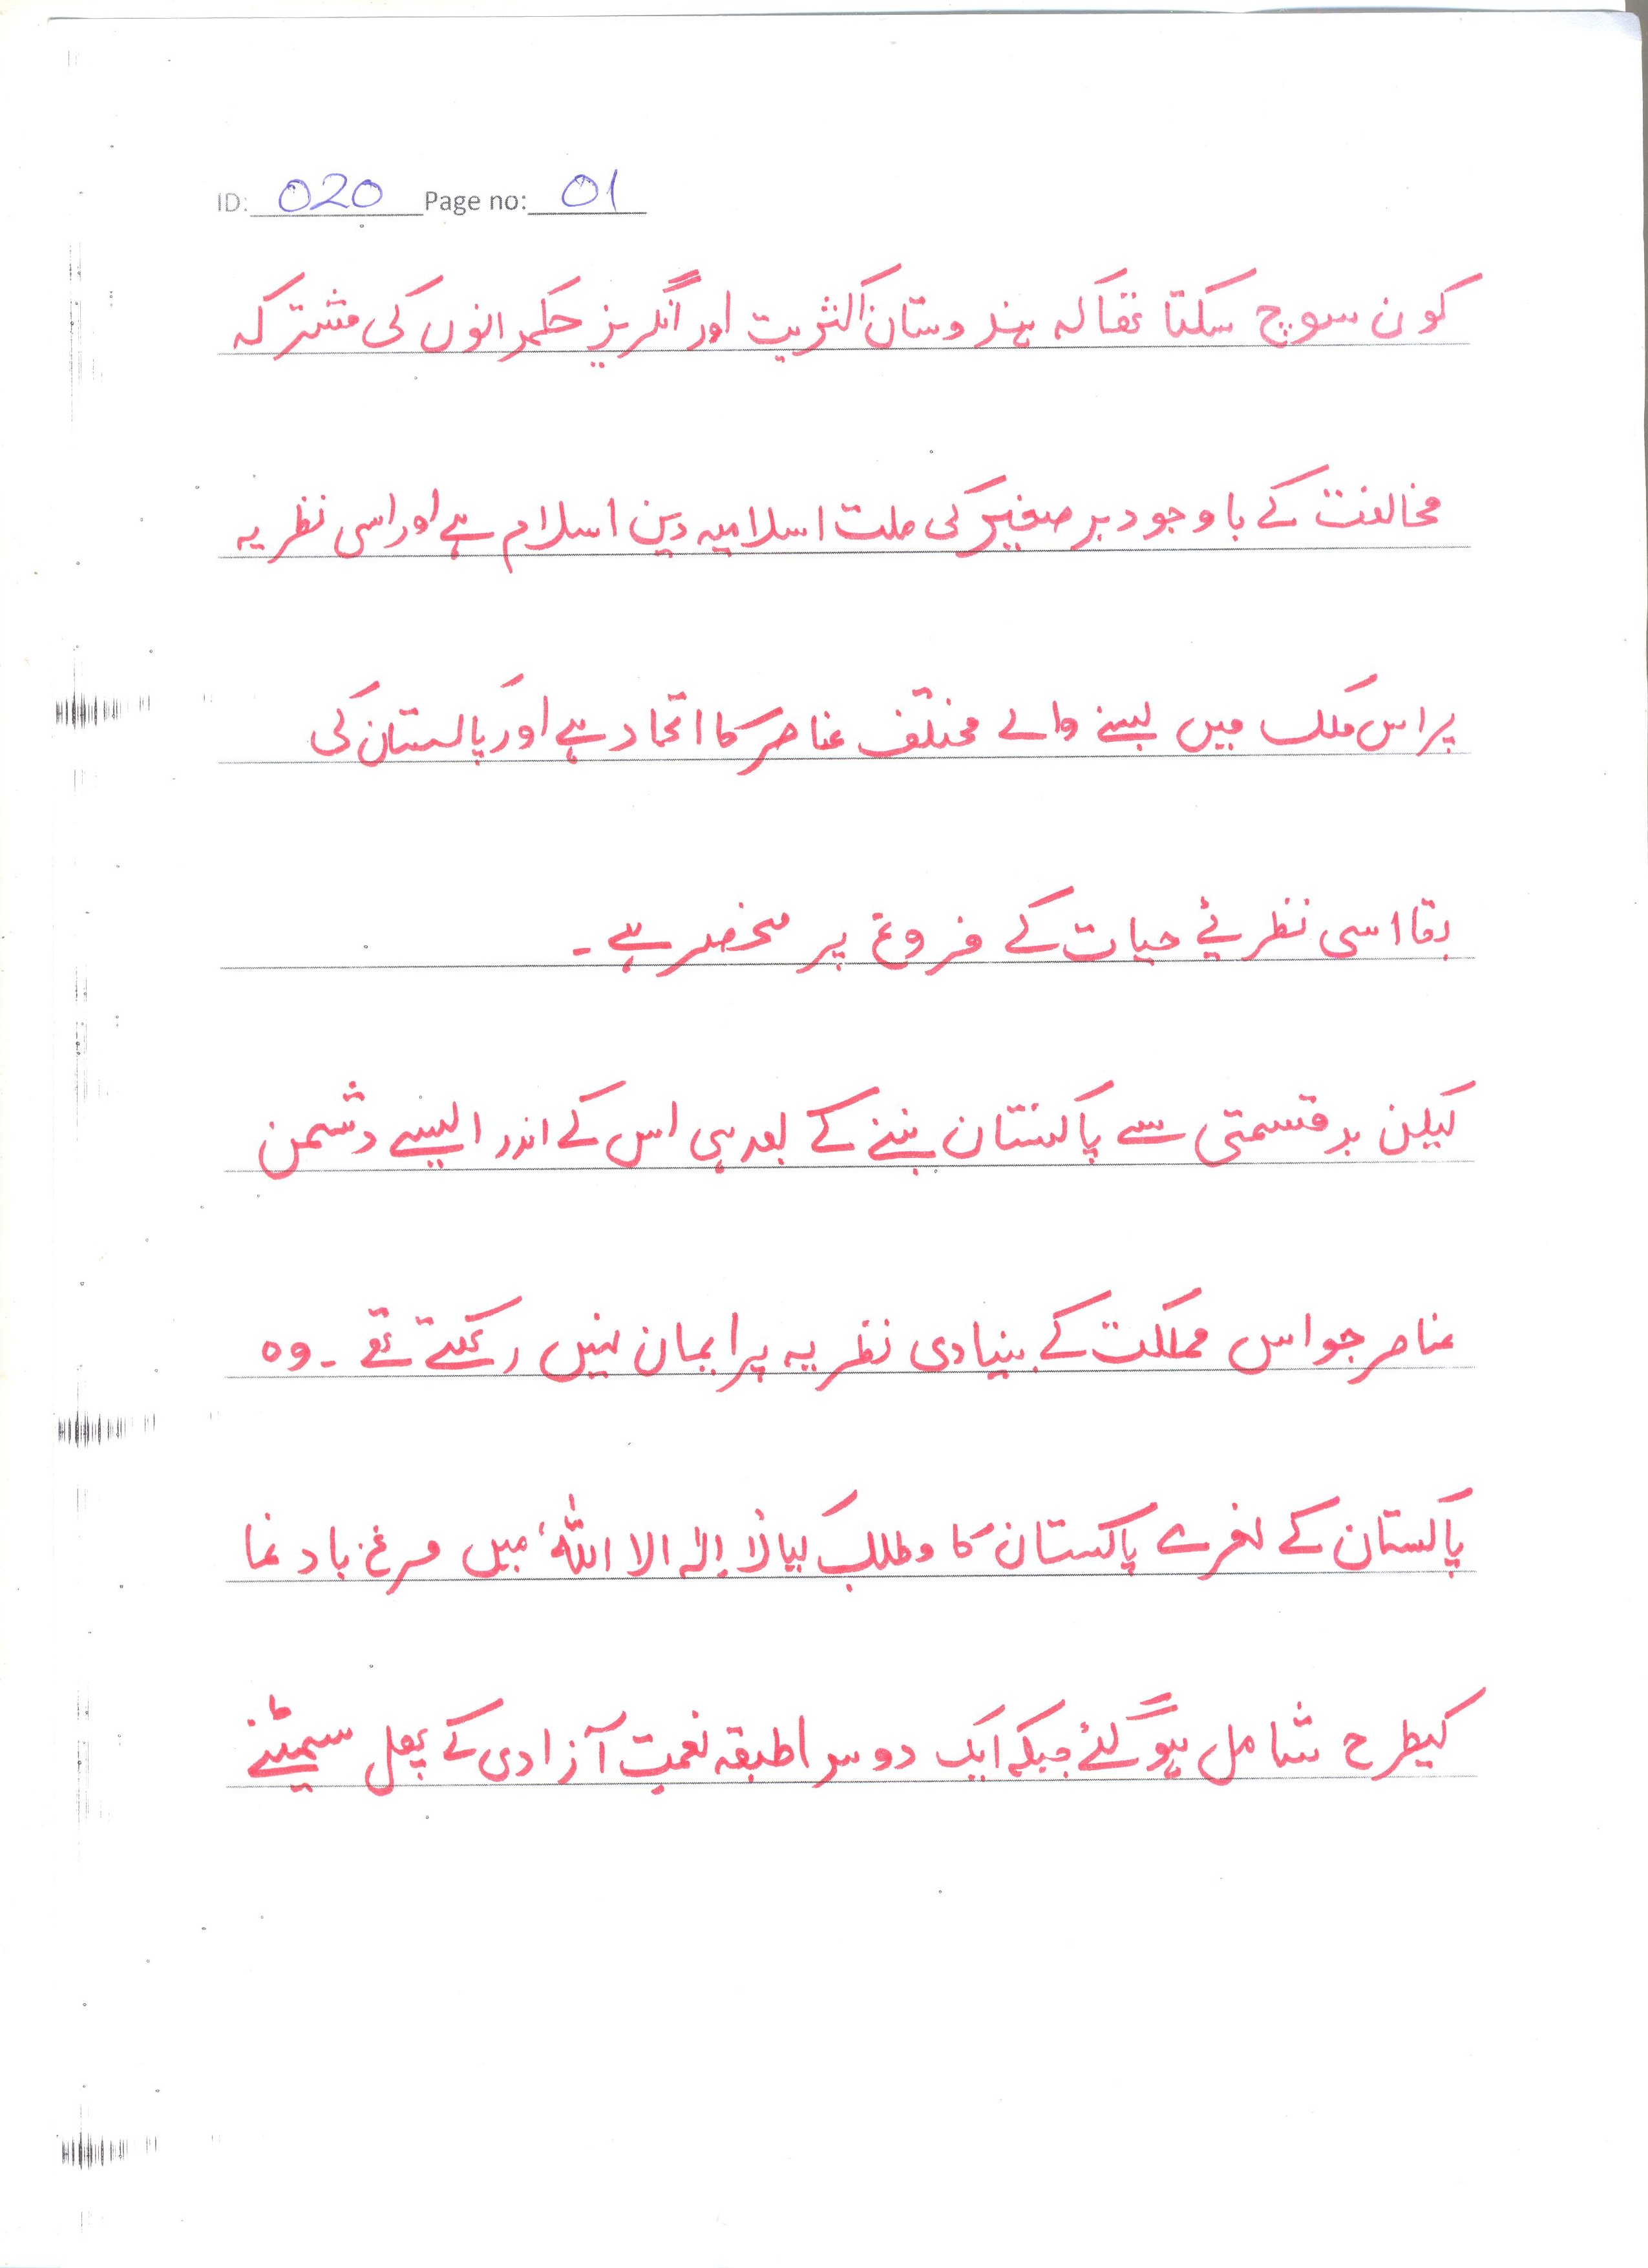 ID: 020 Page no: 01
کون سوچ سکتا تھا کہ ہندوستان اکثریت اور انگریز حکمرانوں کی مشترکہ
مخالفت کے باوجود برصغیر کی ملت اسلامیہ دین اسلام ہے اور اسی نظریہ
پر اس ملک میں بسنے والے مختلف عناصر کا اتحاد ہے اور پاکستان کی
بقا اسی نظریے حیات کے فروغ پر منحصر ہے ۔
لیکن بدقسمتی سے پاکستان بننے کے بعد ہی اس کے اندر ایسے دشمن
عناصر جو اس مملکت کے بنیادی نظریہ پر ایمان نہیں رکھتے تھے ۔ وہ
پاکستان کے نعرے پاکستان کا مطلب کیا لا إلہ الا اللہ میں مرغ باد نما
کیطرح شامل ہو گئے جبکہ ایک دوسرا طبقہ نعمت آزادی کے پھل سمیٹنے